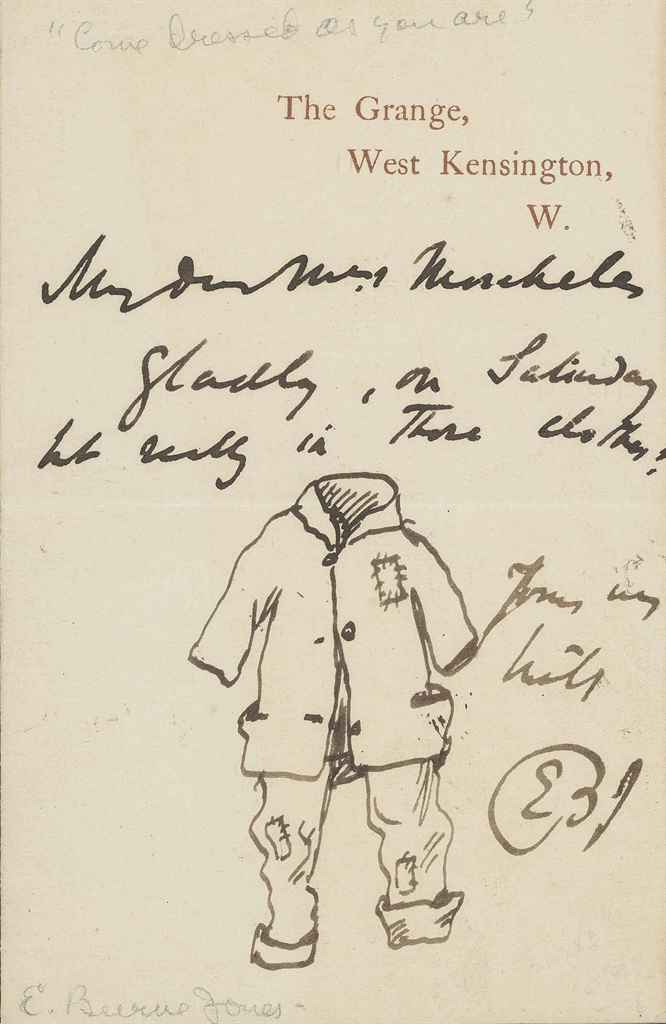 "Come dressed as you are"
The Grange,
West Kensington,
W.
My dear Mrs Moscheles
Gladly, on Saturday
but really in those clothes?
Yours very
truly
EBJ
E. Burne Jones-